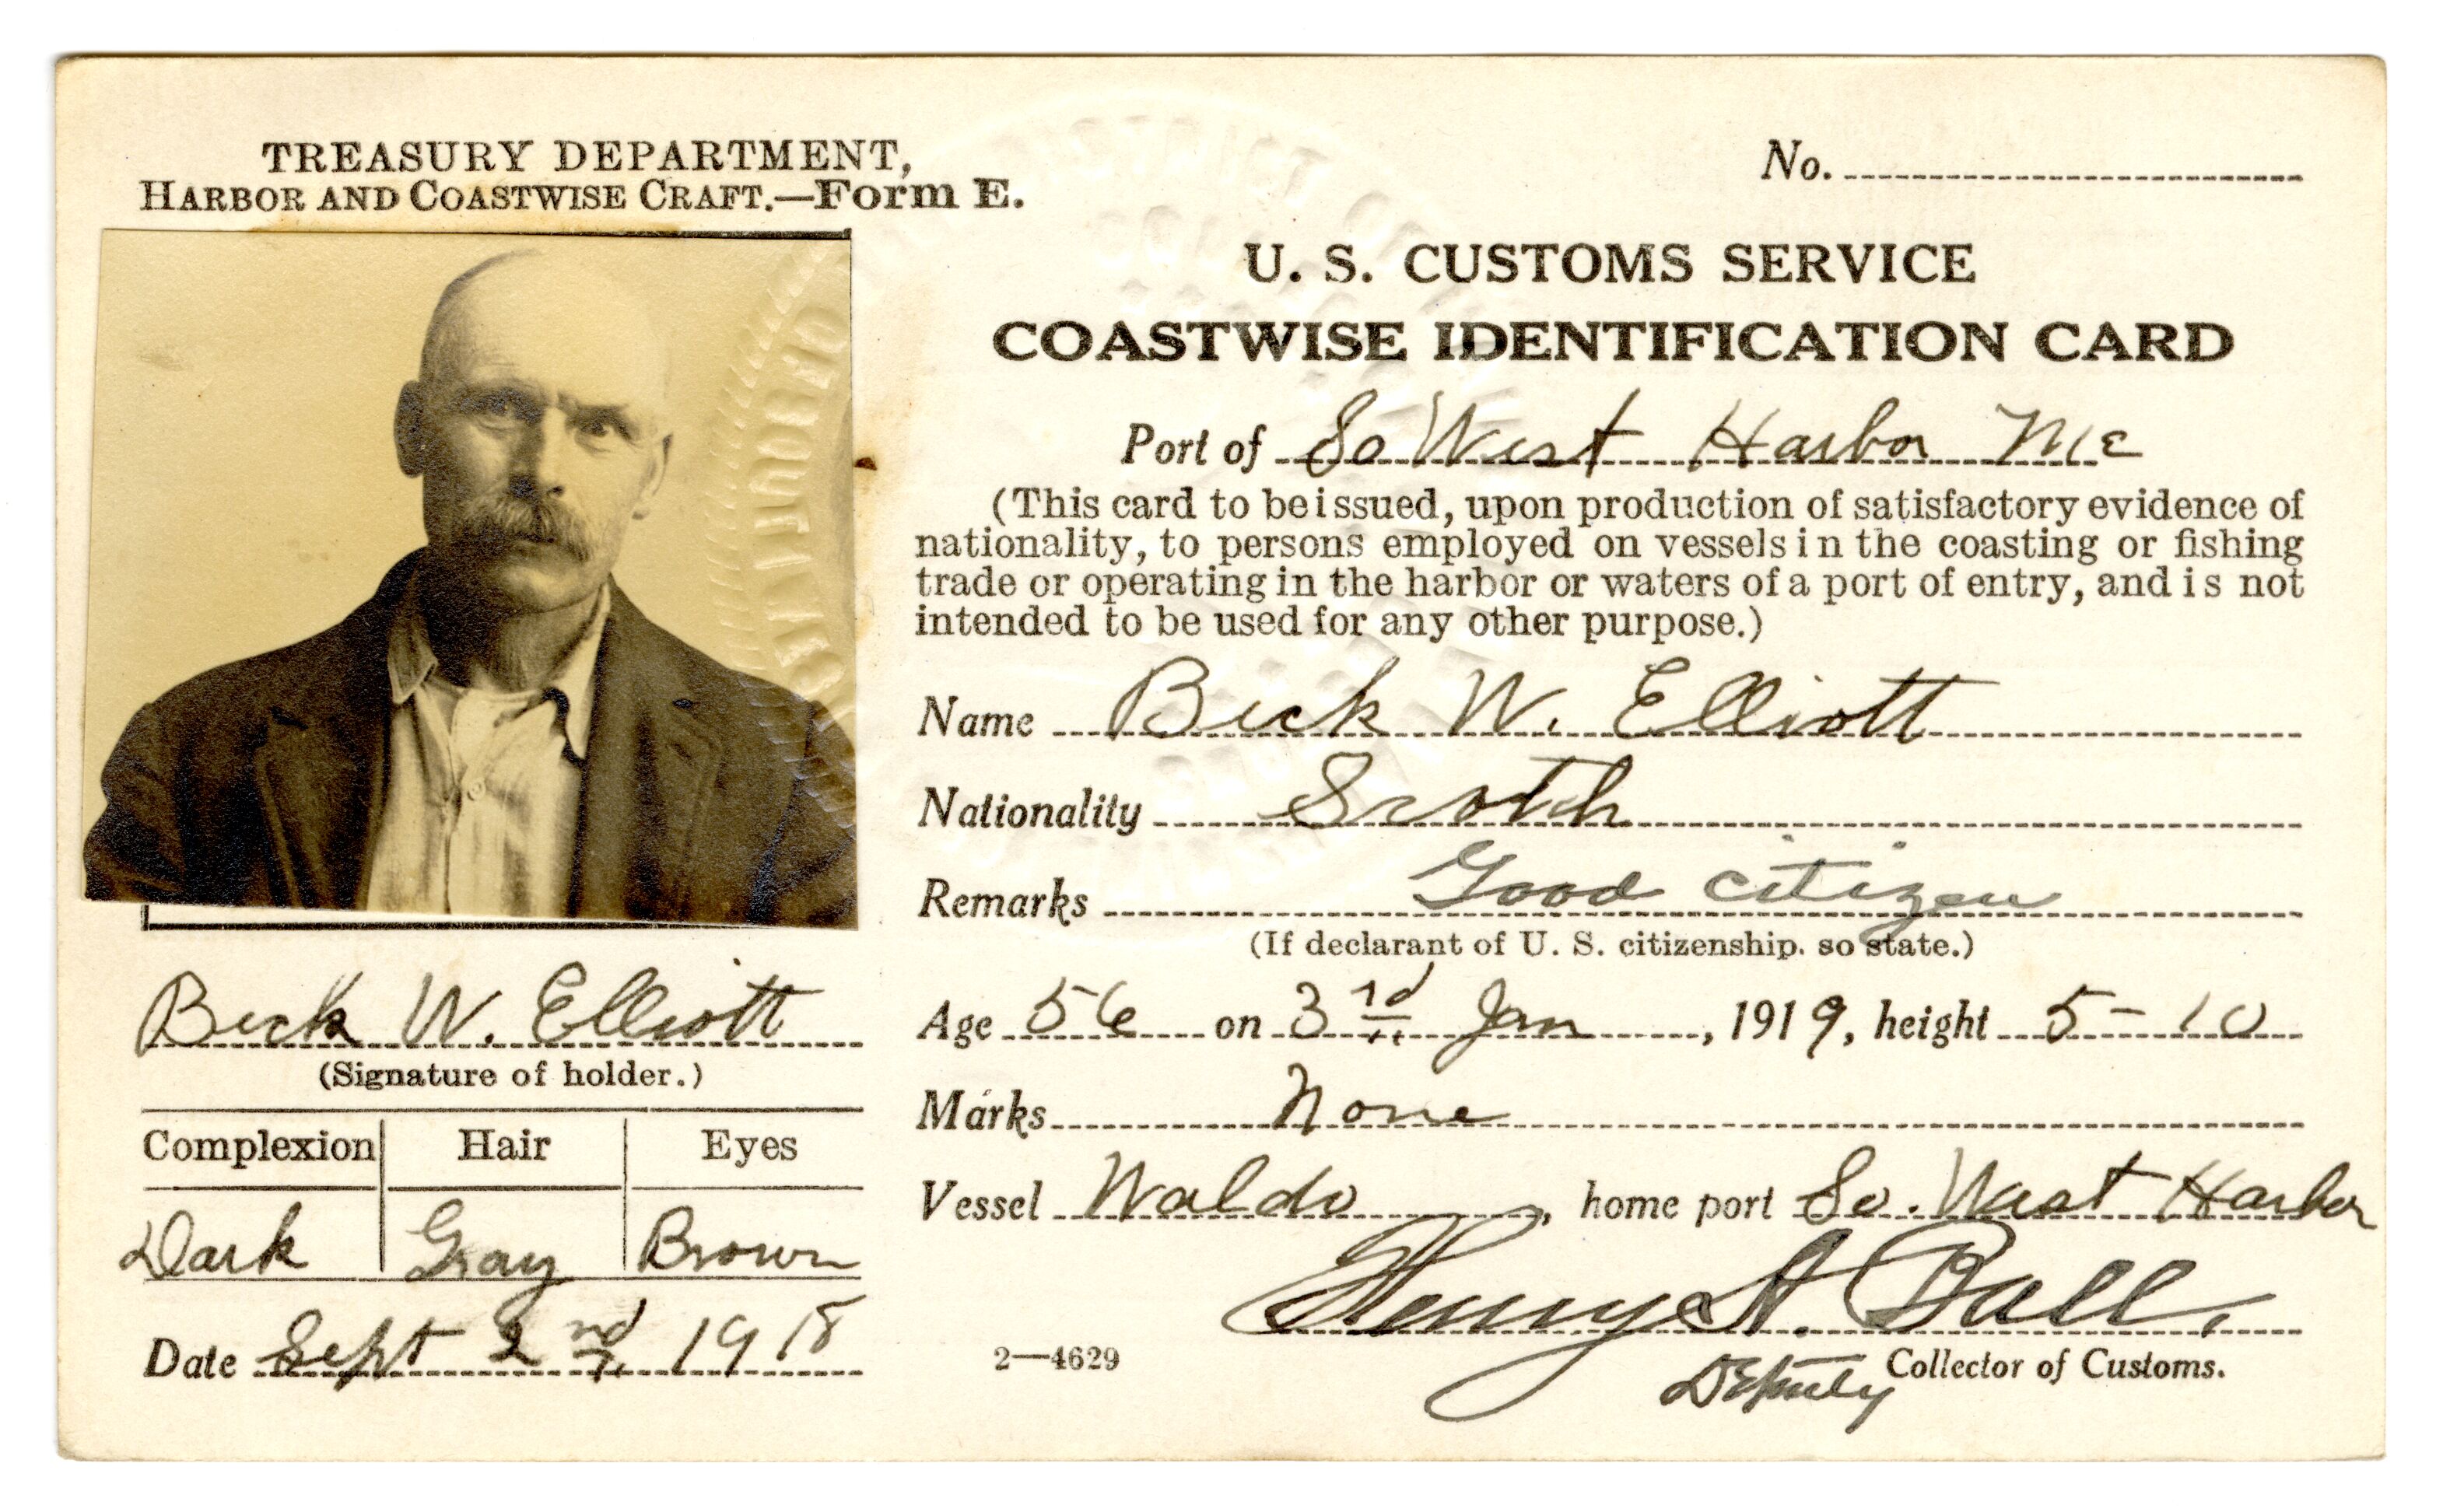 TREASURY DEPARTMENT,
HARBOR AND COASTWISE CRAFT.—Form E.
No.
U. S. CUSTOMS SERVICE
COASTWISE IDENTIFICATION CARD
Port of So West Harbor Me
(This card to be issued, upon production of satisfactory evidence of
nationality, to persons employed on vessels in the coasting or fishing
trade or operating in the harbor or waters of a port of entry, and is not
intended to be used for any other purpose.)
Name Beck W. Elliott
Nationality Scotch
Remarks Good citizen
(If declarant of U. S. citizenship, so state.)
Age 56 on 3rd Jan, 1919, height 5-10
Marks None
Vessel Waldo, home port So. West Harbor
Henry A. Ball,
Deputy Collector of Customs.
2—4629
Beck W. Elliott
(Signature of holder.)
Complexion Hair Eyes
Dark Gray Brown
Date Sept 2nd 1918